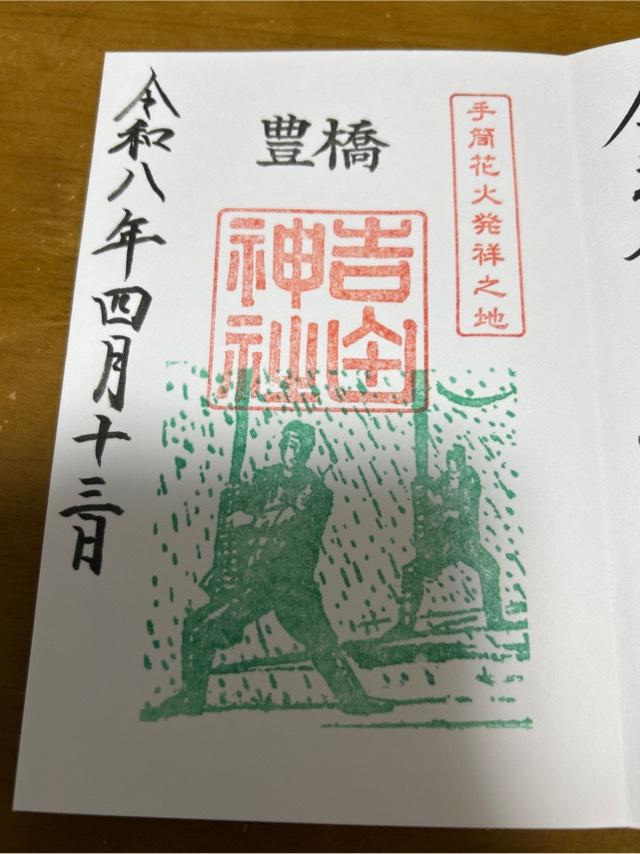 手筒花火発祥之地
豊橋
吉田
神社
令和八年四月十三日